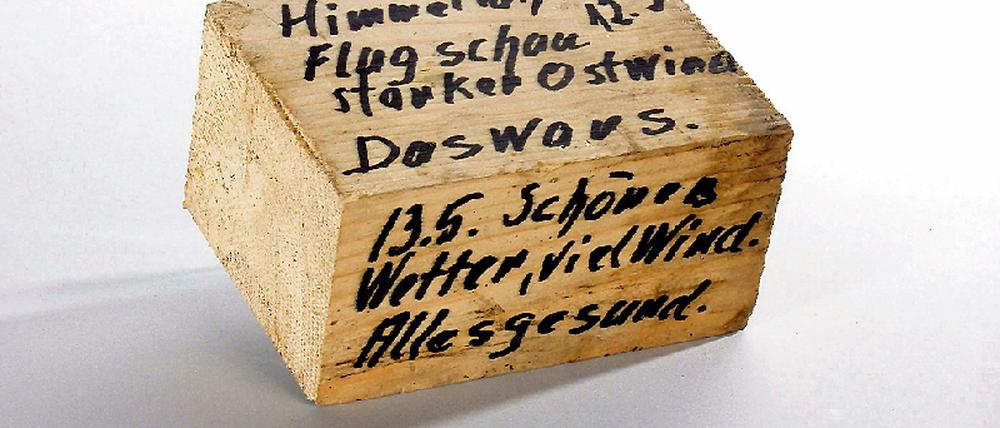 Flugschau
starker Ostwind
Das wars.
13.5. Schönes
Wetter, viel Wind.
Alles gesund.